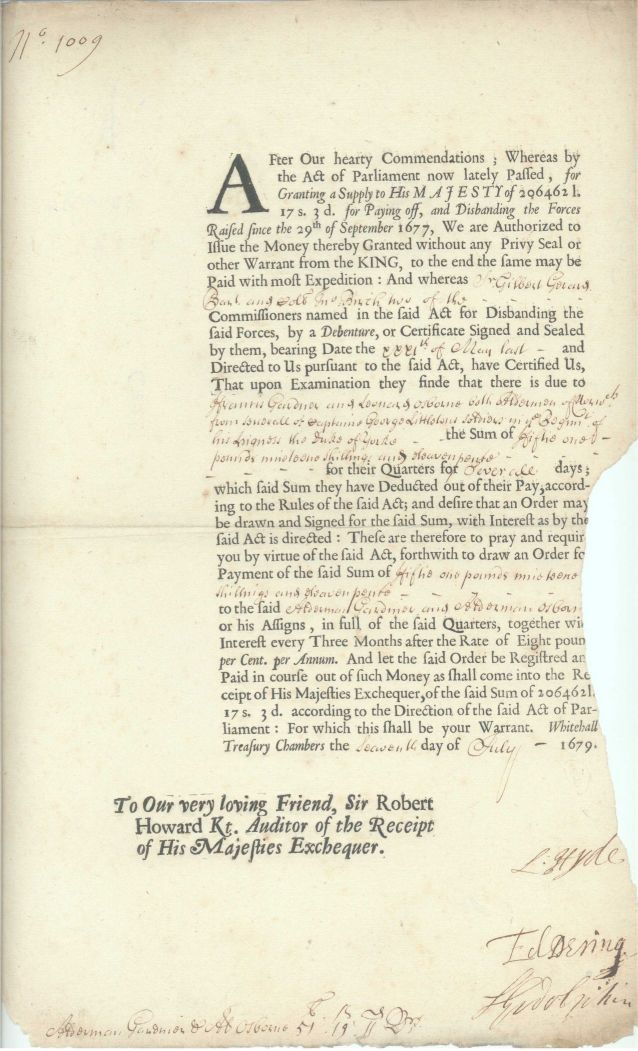 No. 1009
AFter Our hearty Commendations ; Whereas by
the Act of Parliament now lately Paſſed , for
Granting a Supply to His MAJESTY of 206462 l.
17 s. 3 d. for Paying off, and Disbanding the Forces
Raiſed ſince the 29th of September 1677, We are Authorized to
Iſſue the Money thereby Granted without any Privy Seal or
other Warrant from the KING, to the end the ſame may be
Paid with moſt Expedition : And whereas Sr Gilbert Gerard
Bart and Jno Birch two of the
Commiſſioners named in the ſaid Act for Disbanding the
ſaid Forces, by a Debenture, or Certificate Signed and Sealed
by them, bearing Date the xxxith of May last - and
Directed to Us purſuant to the ſaid Act, have Certified Us,
That upon Examination they finde that there is due to
Francis Gardner and Leonard Osborne both Aldermen of
from severall of Captaine George Littletons soldiers in ye Regimt of
his Highness the Duke of Yorke - the Sum of fiftie one -
pounds nineteene shillings and eleaven pence -
- - - - for their Quarters for severall days ;
which ſaid Sum they have Deducted out of their Pay, accord-
ing to the Rules of the ſaid Act; and deſire that an Order may
be drawn and Signed for the ſaid Sum, with Intereſt as by the
ſaid Act is directed : Theſe are therefore to pray and requir
you by virtue of the ſaid Act, forthwith to draw an Order fo
Payment of the ſaid Sum of fiftie one pounds nineteene
shillings and eleaven pence - - - -
to the ſaid Alderman Gardner and Alderman Osborn
or his Aſſigns , in full of the ſaid Quarters, together wi
Intereſt every Three Months after the Rate of Eight poun
per Cent. per Annum. And let the ſaid Order be Regiſtred an
Paid in courſe out of ſuch Money as ſhall come into the Re
ceipt of His Majeſties Exchequer, of the ſaid Sum of 206462 l.
17 s. 3 d. according to the Direction of the ſaid Act of Par-
liament : For which this ſhall be your Warrant. Whitehall
Treaſury Chambers the seaventh day of July - 1679.
To Our very loving Friend, Sir Robert
Howard Kt. Auditor of the Receipt
of His Majeſties Exchequer.
L: Hyde
Ed Dering
S Godolphin
Alderman Gardner & Al Osborne 51 19 11